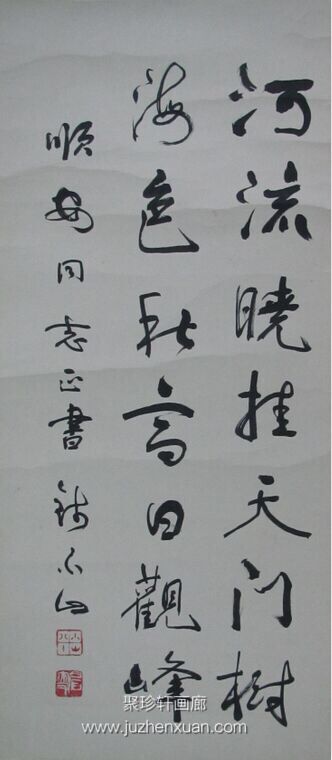 河流曉挂天门樹
海色秋高日觀峰
順安同志正書 錢小山
聚珍轩画廊
www.juzhenxuan.com